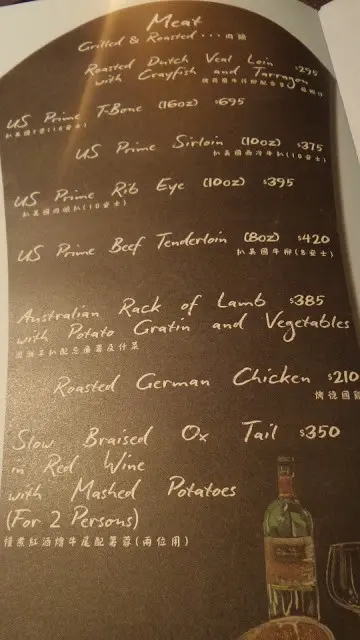 Meat
Grilled & Roasted . . . 肉類
Roasted Dutch Veal Loin $295
with Crayfish and Tarragon
US Prime T-Bone (16oz) $695
扒美國T骨(16安士)
US Prime Sirloin (10oz) $375
扒美國西冷牛扒(10安士)
US Prime Rib Eye (10oz) $395
扒美國肉眼扒(10安士)
US Prime Beef Tenderloin (8oz) $420
扒美國牛柳(8安士)
Australian Rack of Lamb $385
with Potato Gratin and Vegetables
Roasted German Chicken $210
烤德國雞
Slow Braised Ox Tail $350
in Red Wine
with Mashed Potatoes
(For 2 Persons)
慢煮紅酒燴牛尾配薯蓉(兩位用)